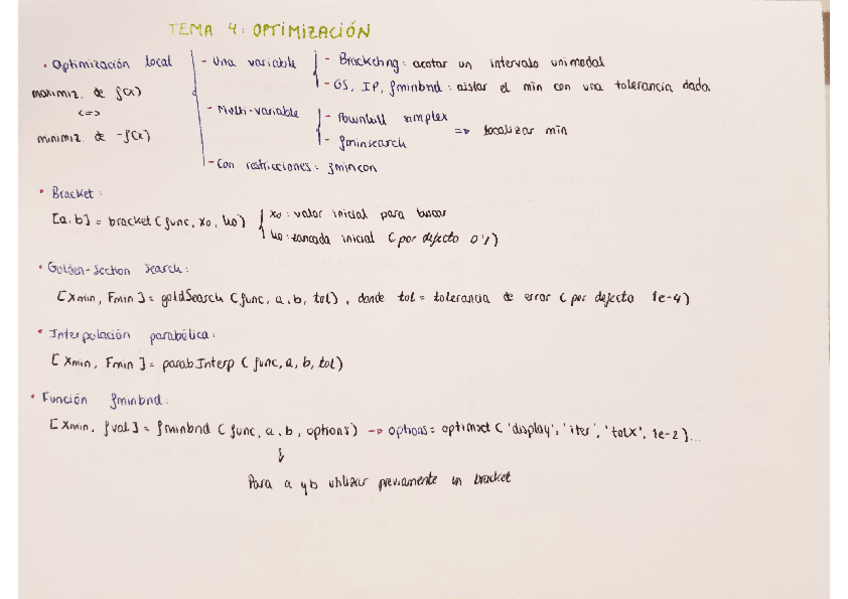 TEMA 4: OPTIMIZACIÓN
• Optimización local
maximiz. de f(x)
<=>
minimiz. de -f(x)
- Una variable
- Bracketing: acotar un intervalo unimodal
- GS, IP, fminbnd: aislar el min con una tolerancia dada.
- Multi-variable
- Downhill simplex
- fminsearch
=> localizar min
- Con restricciones: fmincon
• Bracket:
[a,b] = bracket (func, xo, ho)
xo: valor inicial para buscar
ho: zancada inicial (por defecto 0'1)
• Golden-section search:
[Xmin, Fmin] = goldSearch (func, a, b, tol), donde tol = tolerancia de error (por defecto 1e-4)
• Interpolación parabólica:
[Xmin, Fmin] = parabInterp (func, a, b, tol)
• Función fminbnd:
[Xmin, fval] = fminbnd (func, a, b, options) -> options = optimset ('display', 'iter', 'tolX', 1e-2)...
↓
Para a y b utilizar previamente un bracket